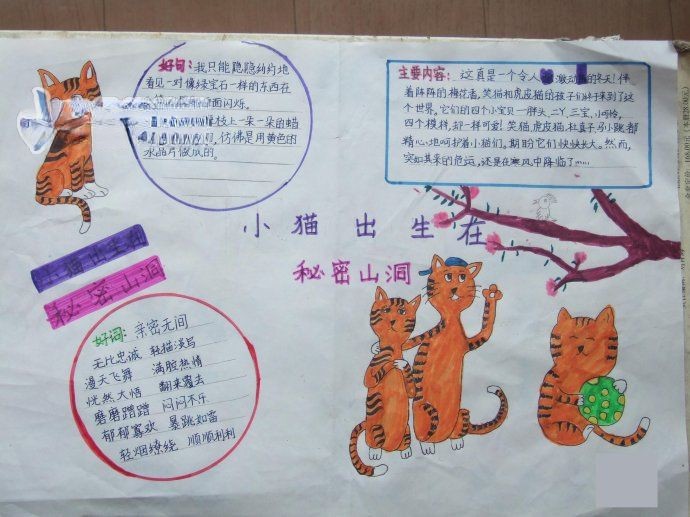 好句：我只能隐隐约约地
看见一对像绿宝石一样的东西在
面闪烁。
枝上一朵一朵的蜡
的，仿佛是用黄色的
水晶片做成的。
主要内容：这真是一个令人激动的冬天！伴
着阵阵的梅花香，笑猫和虎皮猫的孩子们终于来到了这
个世界。它们的四个小宝贝—胖头、二丫、三宝、小可怜，
四个模样，却一样可爱！笑猫、虎皮猫、杜真子、马小跳，都
精心地呵护着小猫们，期盼它们快快长大。然而，
突如其来的危运，还是在寒风中降临了……
小猫出生在
秘密山洞
小猫出生在
秘密山洞
好词：亲密无间
无比忠诚 轻描淡写
漫天飞舞 满腔热情
恍然大悟 翻来覆去
磨磨蹭蹭 闷闷不乐
郁郁寡欢 暴跳如雷
轻烟缭绕 顺顺利利